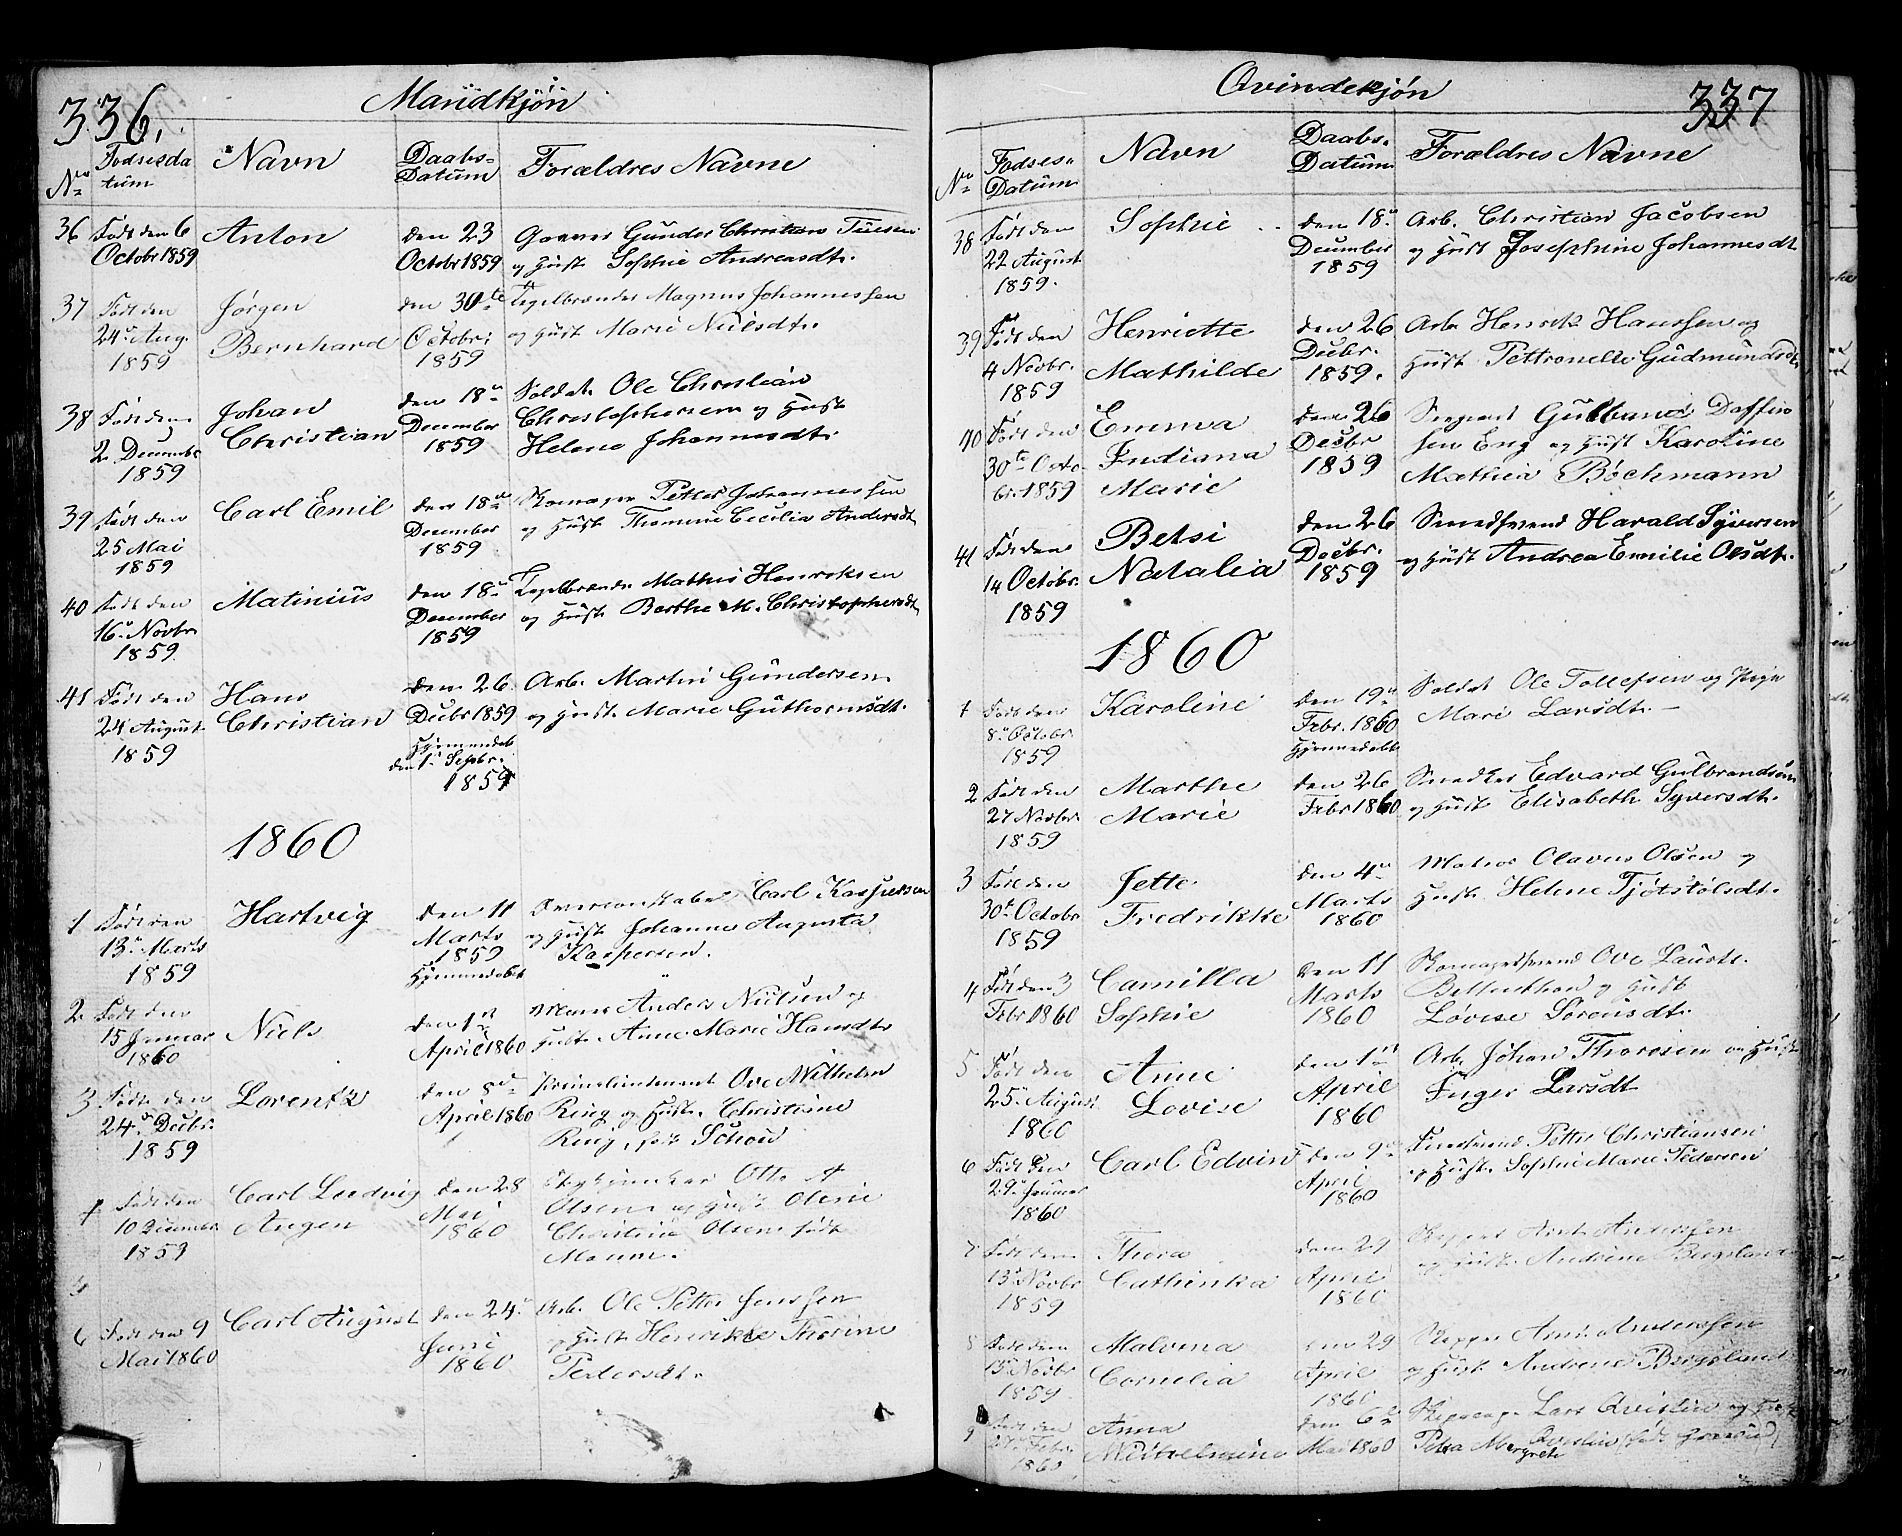 336.
Mandkjøn
No
Fødselsda
tum
Navn
Daabs-
Datum
Forældres Navne
36
Født den 6
Octobr 1859
Anton
den 23
Octobr 1859
Gunder Christian
og Hust. Sophie Andreasdt.
37
Født den
24de Aug.
1859
Jørgen
Bernhard
den 30te
Octobr.
1859
Tegelbrænder Magnus Johannessen
og Hust. Marie Nielsdt.
38
Født den
2 Decembr
1859
Johan
Christian
den 18de
December
1859
Soldat Ole Christian
Christophersen og Hust.
Helene Johannesdt.
39
Født den
25 Mai
1859
Carl Emil
den 18de
December
1859
Skomager Petter Johannessen
og Hust. Thomine Cecilia Andersdt
40
Født den
16de Novbr.
1859
Matinius
den 18de
December
1859
Tegelbrænder Mathis Henriksen
og Hust. Berthe M. Christophersdt
41
Født den
24 August
1859
Hans
Christian
den 26
Decbr 1859
Hjemmedøbt
den 1ste Sepbr.
1859
Arb. Martin Gundersen
og Hust. Marie Guthormsdt.
1860
1
Født den
13de Marts
1859
Hartvig
den 11
Marts
1859
Hjemmedøbt
Overconstabel Carl Kaspersen
og Hust. Johanne Augusta
Kaspersen.
2
Født den
15 Januar
1860
Niels
den 1ste
April 1860
Anders Nielsen og
Hust. Anne Marie Hansdt.
3
Født den
24de Decbr.
1859
Lorentz
den 8de
April 1860
Premierlieutenant Ove Wilhelm
Ring og Hust. Christine
Ring, født Schou
4
Født den
10 December
1859
Carl Ludvig
Augen
den 28
Mai
1860
Otto A
Olsen og Hust. Oline
Christine Olsen født
5
6
Født den 9
Mai 1860
Carl August
den 24de
Juni
1860
Arb. Ole Petter Jenssen
og Hust. Henrikke Thorine
Pedersdt.
337
Qvindekjøn
No
Fødsels-
Datum
Navn
Daabs-
Datum
Forældres Navne
38
Født den
22 August
1859.
Sophie
den 18de
December
1859
Arb. Christian Jacobsen
og Hust. Josephine Johannesdt
39
Født den
4 Novbr.
1859
Henriette
Mathilde
den 26
Decbr.
1859.
Arb. Henrik Hanssen og
Hust. Pettronelle Gudmundsdt.
40
Født den
30te Octo-
br. 1859
Emma
Indiana
Marie
den 26
Decbr
1859
Sergeant Gulbrand Daffin
sen Eng og Hust. Karoline
Mathea Bøchmann
41
Født den
14 Octobr.
1859
Betsi
Natalia
den 26
Decbr.
1859
Smedsvend Harald Syversen
og Hust. Andrea Emilie Olsdt.
1860
1
Født den
8de Octobr.
1859
Karoline
den 19de
Febr. 1860
Hjemmedøbt
Soldat Ole Tollefsen og Pige
Mari Larsdt.
2
Født den
27 Novbr
1859
Marthe
Marie
den 26
Febr 1860
Edvard Gulbrandsen
og Hust. Elisabeth Syversdt.
3
Født den
30te Octobr
1859
Jette
Fredrikke
den 4de
Marts
1860
Matros Olaves Olsen og
Hust. Helene Tjøtstølsdt.
4
Født den 3
Febr. 1860
Camilla
Sophie
den 11
Marts
1860
Skomagersvend Ove
og Hust.
Lovise Sørensdt.
5
Født den
25de August
1860
Anne
Lovise
den 1ste
April
1860
Arb. Johan Thoresen og Hust.
Inger Larsdt
6
Født den
29de Januar
1860
Carl Edvin
den 9de
April
1860
Petter Christiansen
og Hust. Sophie Marie Pedersen
7
Født den
13de Novbr
1859
Thora
Cathinka
den 29
April
1860
Skipper Arnt Anderssen
og Hust. Andrine Bergsland
8
Født den
15de Novbr
1859.
Malvina
Cornelia
den 29
April
1860
Skipper Arnt Anderssen
og Hust. Andrine Bergsland
9
Født den
Febr.
1860
Anna
den 6te
Mai 1860
Lars Qvislin og Hust.
Petra Margrete Qvislin